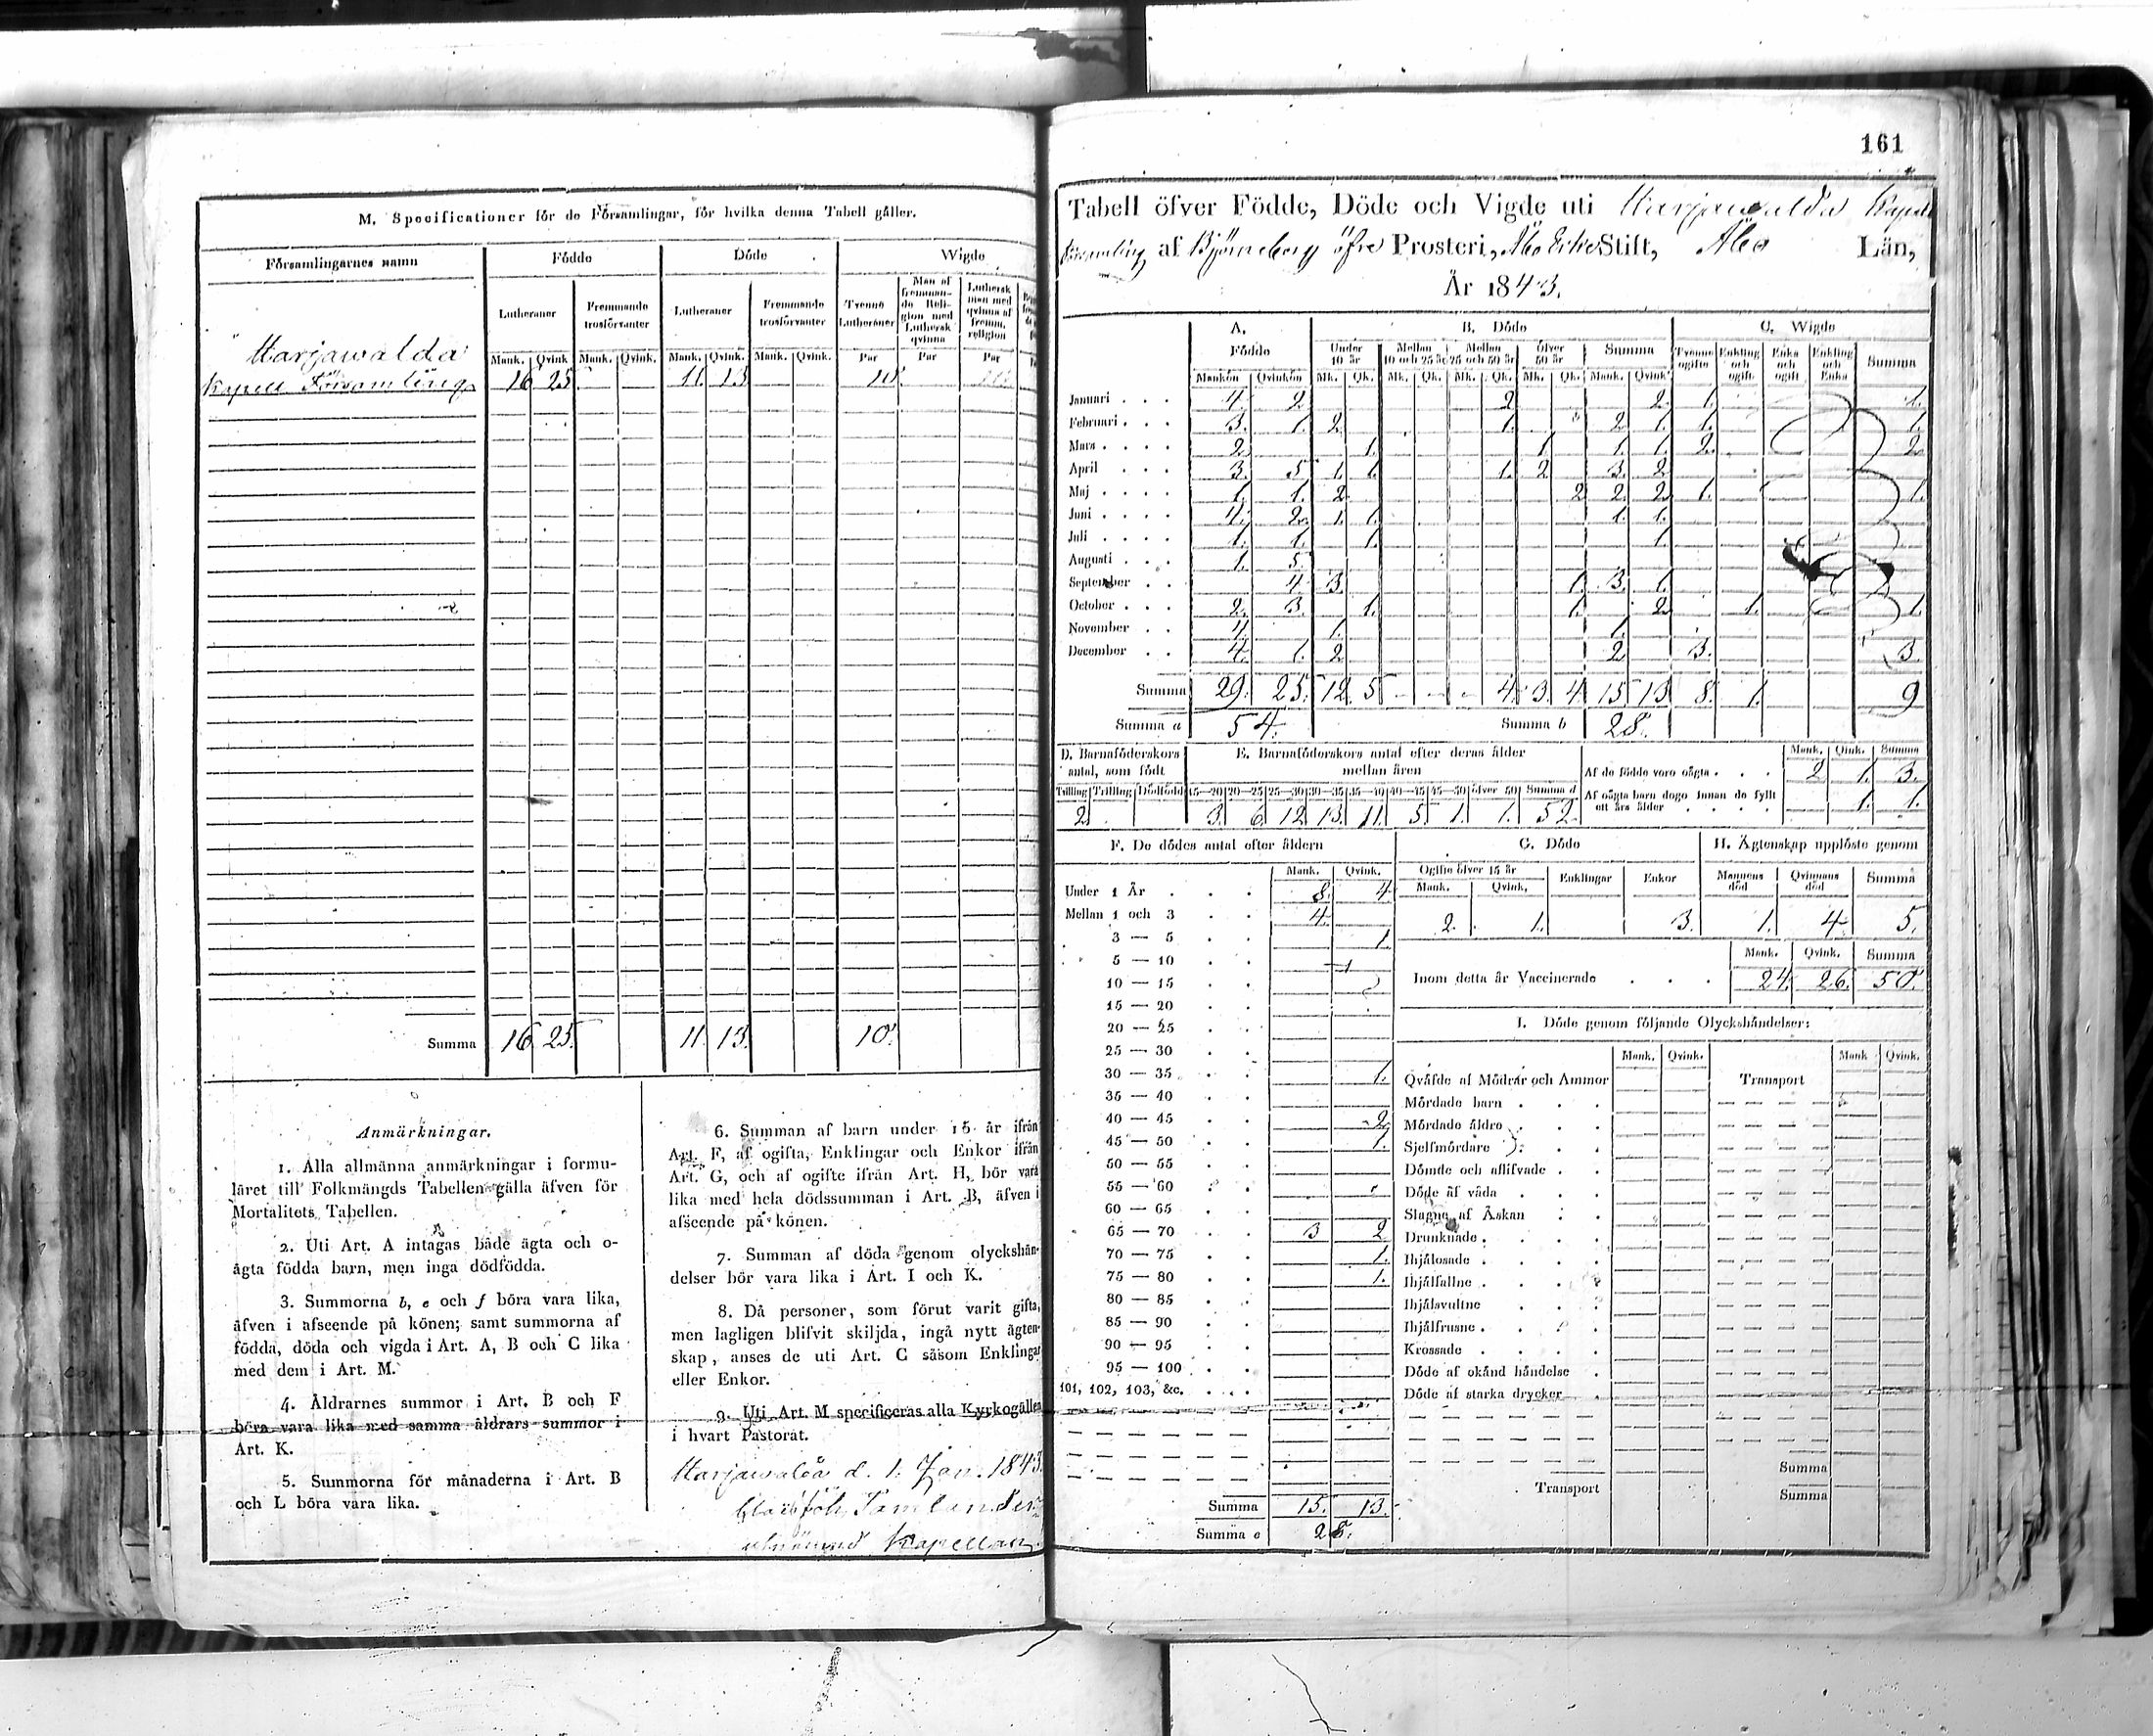 M. Specificationer för de Församlingar, för hvilka denna Tabell gäller.
Församlingarnes namn Födde Döde Wigde
Lutheraner Fremmande trosförvanter Lutheraner Fremmande trosförvanter Tvenne Lutheraner Man af fremman-de Reli-gion med Luthersk qvinna Luthersk man med qvinna af fremm. religion
Mank. Qvink. Mank. Qvink. Mank. Qvink. Mank. Qvink. Par Par Par
Harjawalda
Kapell Församling 16 25 11 13 10
Summa 16 25. 11. 13. 10.
Anmärkningar.
1. Alla allmänna anmärkningar i formu-
läret till Folkmängds Tabellen gälla äfven för
Mortalitets Tabellen.
2. Uti Art. A intagas både ägta och o-
ägta födda barn, men inga dödfödda.
3. Summorna b, e och f böra vara lika,
äfven i afseende på könen; samt summorna af
födda, döda och vigda i Art. A, B och C lika
med dem i Art. M.
4. Åldrarnes summor i Art. B och F
böra vara lika med samma åldrars summor i
Art. K.
5. Summorna för månaderna i Art. B
och L böra vara lika.
6. Summan af barn under 15 år ifrån
Art. F, af ogifta, Enklingar och Enkor ifrån
Art. G, och af ogifte ifrån Art. H, bör vara
lika med hela dödssumman i Art. B, äfven i
afseende på könen.
7. Summan af döda genom olyckshän-
delser bör vara lika i Art. I och K.
8. Då personer, som förut varit gifta,
men lagligen blifvit skiljda, ingå nytt ägten-
skap, anses de uti Art. C såsom Enklingar
eller Enkor.
9. Uti Art. M specificeras alla Kyrkogällen
i hvart Pastorat.
Harjawalda d. 1. Jan. 1843.
Kapellan
161
Tabell öfver Födde, Döde och Vigde uti Harjawalda Kapell
Församling af Björneborg öfre Prosteri, Åbo Erke Stift, Åbo Län,
År 1843.
A. Födde B. Döde C. Wigde
Under 10 år Mellan 10 och 25 år Mellan 25 och 50 år öfver 50 år Summa Tvenne ogifte Enkling och ogift Enka och ogift Enkling och Enka Summa
Mankön Qvinkön Mk. Qk. Mk. Qk. Mk. Qk. Mk. Qk. Mank. Qvink.
Januari 4. 2. 2 2. 1. 1.
Februari 3. 1. 2 1. 2 1. 1. 1.
Mars 2. 1. 1 1. 1. 2. 2.
April 3. 5 1. 1. 1. 2 3. 2
Maj 1. 1. 2 2 2. 2 1. 1.
Juni 4. 2. 1. 1. 1. 1.
Juli 1. 1. 1. 1.
Augusti 1. 5
September 4 3. 1. 3. 1.
October 2. 3. 1. 1. 2 1. 1.
November 4. 1. 1.
December 4. 1. 2 2 3. 3.
Summa 29. 25. 12 5 - - - 4. 3 4. 15 13 8. 1. 9
Summa a 54. Summa b 28.
D. Barnaföderskors antal, som födt
E. Barnaföderskors antal efter deras ålder mellan åren
Tvilling Trilling Dödfödd 15—20 20—25 25—30 30—35 35—40 40—45 45—50 öfver 50 Summa d
2. 3. 6. 12. 13. 11. 5. 1. 1. 52.
Mank. Qvink. Summa
Af de födde voro oägta 2 1. 3.
Af oägta barn dogo innan de fyllt
ett års ålder 1. 1.
F. De dödes antal efter åldern
Mank. Qvink.
Under 1 År 8. 4.
Mellan 1 och 3 4.
3 — 5 1.
5 — 10
10 — 15
15 — 20
20 — 25
25 — 30
30 — 35 1.
35 — 40
40 — 45 2
45 — 50 1.
50 — 55
55 — 60
60 — 65
65 — 70 3 2
70 — 75 1.
75 — 80 1.
80 — 85
85 — 90
90 — 95
95 — 100
101, 102, 103, &c.
Summa 15. 13.
Summa e 28.
G. Döde
Ogifte öfver 15 år Enklingar Enkor
Mank. Qvink.
2. 1. 3.
H. Ägtenskap upplöste genom
Mannens död Qvinnans död Summa
1. 4. 5.
Mank. Qvink. Summa
Inom detta år Vaccinerade 24. 26. 50.
I. Döde genom följande Olyckshändelser:
Mank. Qvink. Mank Qvink.
Qväfde af Mödrar och Ammor Transport
Mördade barn
Mördade äldre
Sjelfmördare
Dömde och aflifvade
Döde af våda
Slagne af Åskan
Drunknade
Ihjälosade
Ihjälfallne
Ihjälsvultne
Ihjälfrusne
Krossade
Döde af okänd händelse
Döde af starka drycker
Summa
Transport Summa